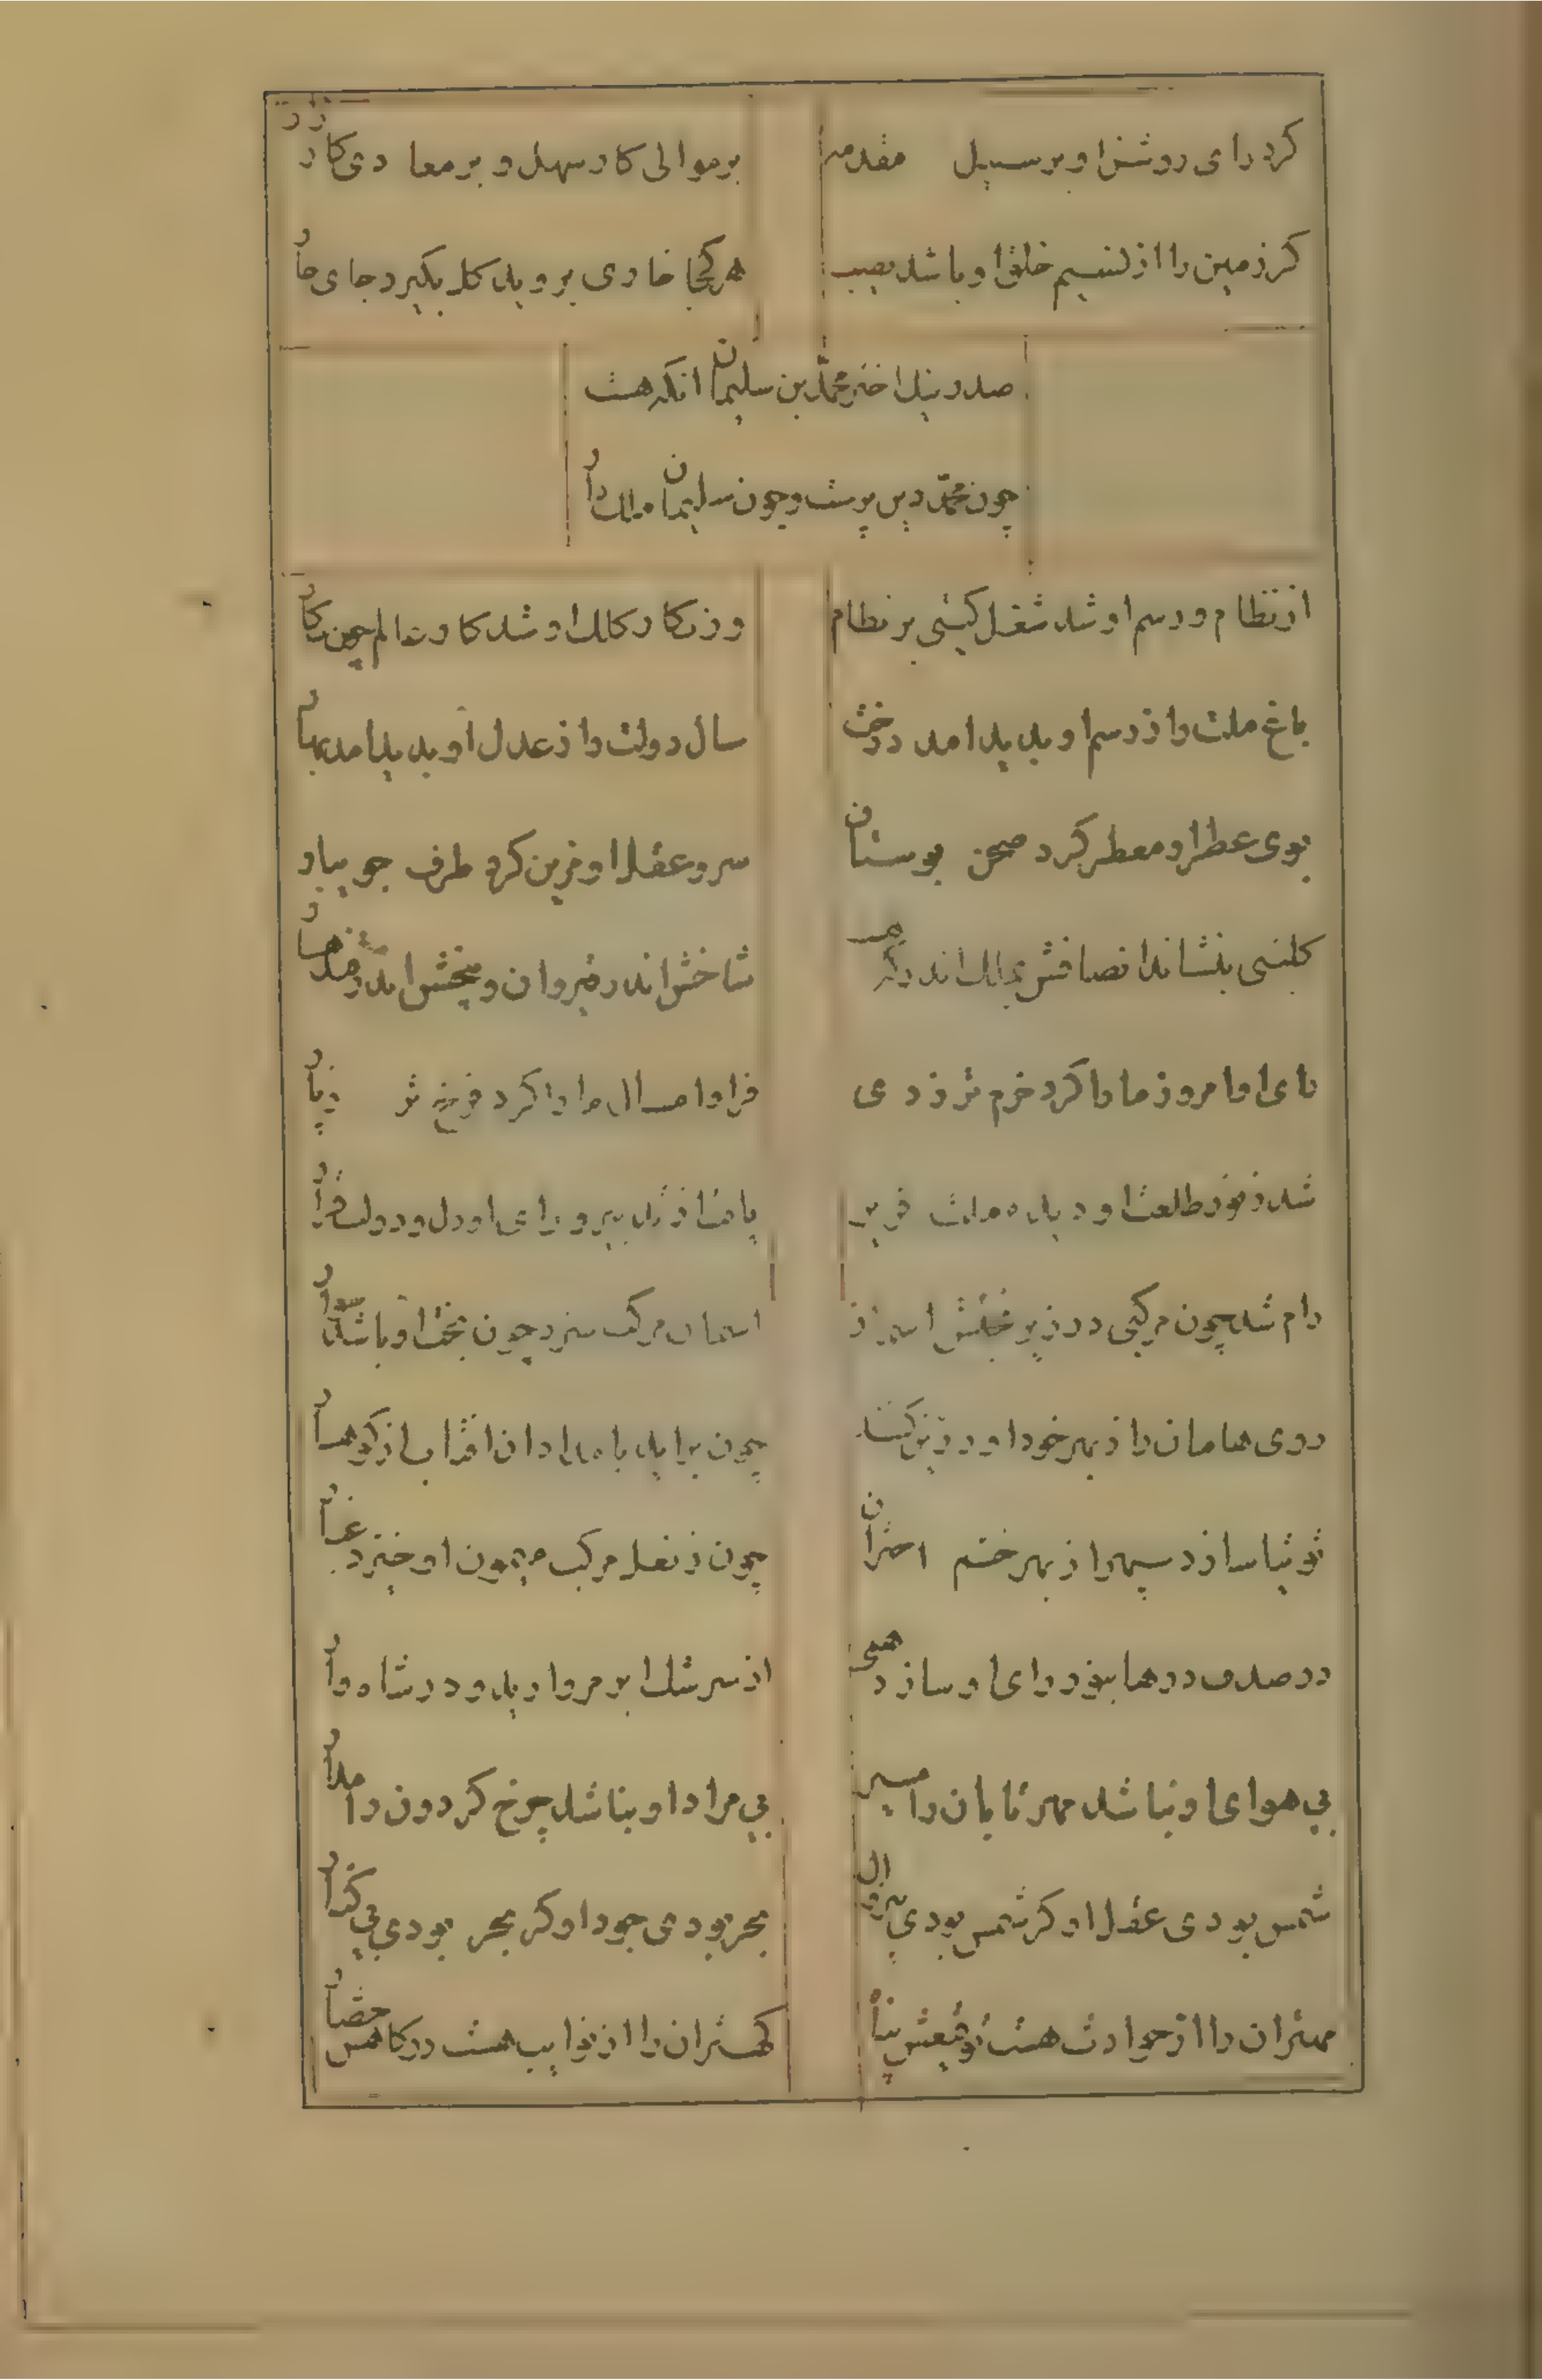 کرد رای روشن او بر سبیل مقدمه
بر موالی کار سهل و بر معادی کار زار
کر زمین را از نسیم خلق او باشد نصیب
هر کجا خاری بروید کل بکیرد جای خار
محمد بن سلیمان انکه هست
چون محمد دین پرست و چون سلیمان ملک دار
از نظام و رسم او شد شغل کیتی بر نظام
وز نکار کلک او شد کار عالم چون نکار
باغ ملت را ز رسم او پدید امد درخت
سال دولت را ز عدل او پدید امد بهار
بوی عطر او معطر کرد صحن بوستان
سرو عقل او مزین کرد طرف جویبار
کلبنی بنشاند انصافش بملک اندر که
شاخش اندر قیروان و بیخش اندر قندهار
رای او امروز ما را کرد خرم تر ز دی
فر او امسال ما را کرد فرخ تر ز پار
شد ز نور طلعت او دیده ملت قریر
یافت از تدبیر و رای او دل دولت قرار
رام شد چون مرکبی در زیر بختش اسمان
اسمان مرکب سزد چون بخت او باشد سوار
روی همامان را ز بهر خود اورد
چون براید بامدادان افتاب از کوهسار
توتیا سازد سپهر از بهر چشم اختران
چون ز نعل مرکب میمون او خیزد غبار
در صدف درها بنور رای او سازد همی
از سرشک ابر مروارید و در شاهوار
بی هوای او نباشد مهر تابان را مسیر
بی مراد او نباشد چرخ کردون را مدار
شمس بودی عقل او کر شمس بودی بی زوال
بحر بودی جود او کر بحر بودی بی کنار
مهتران را از حوادث هست توقیعش پناه
کهتران را از نوایب هست درکاهش حصار